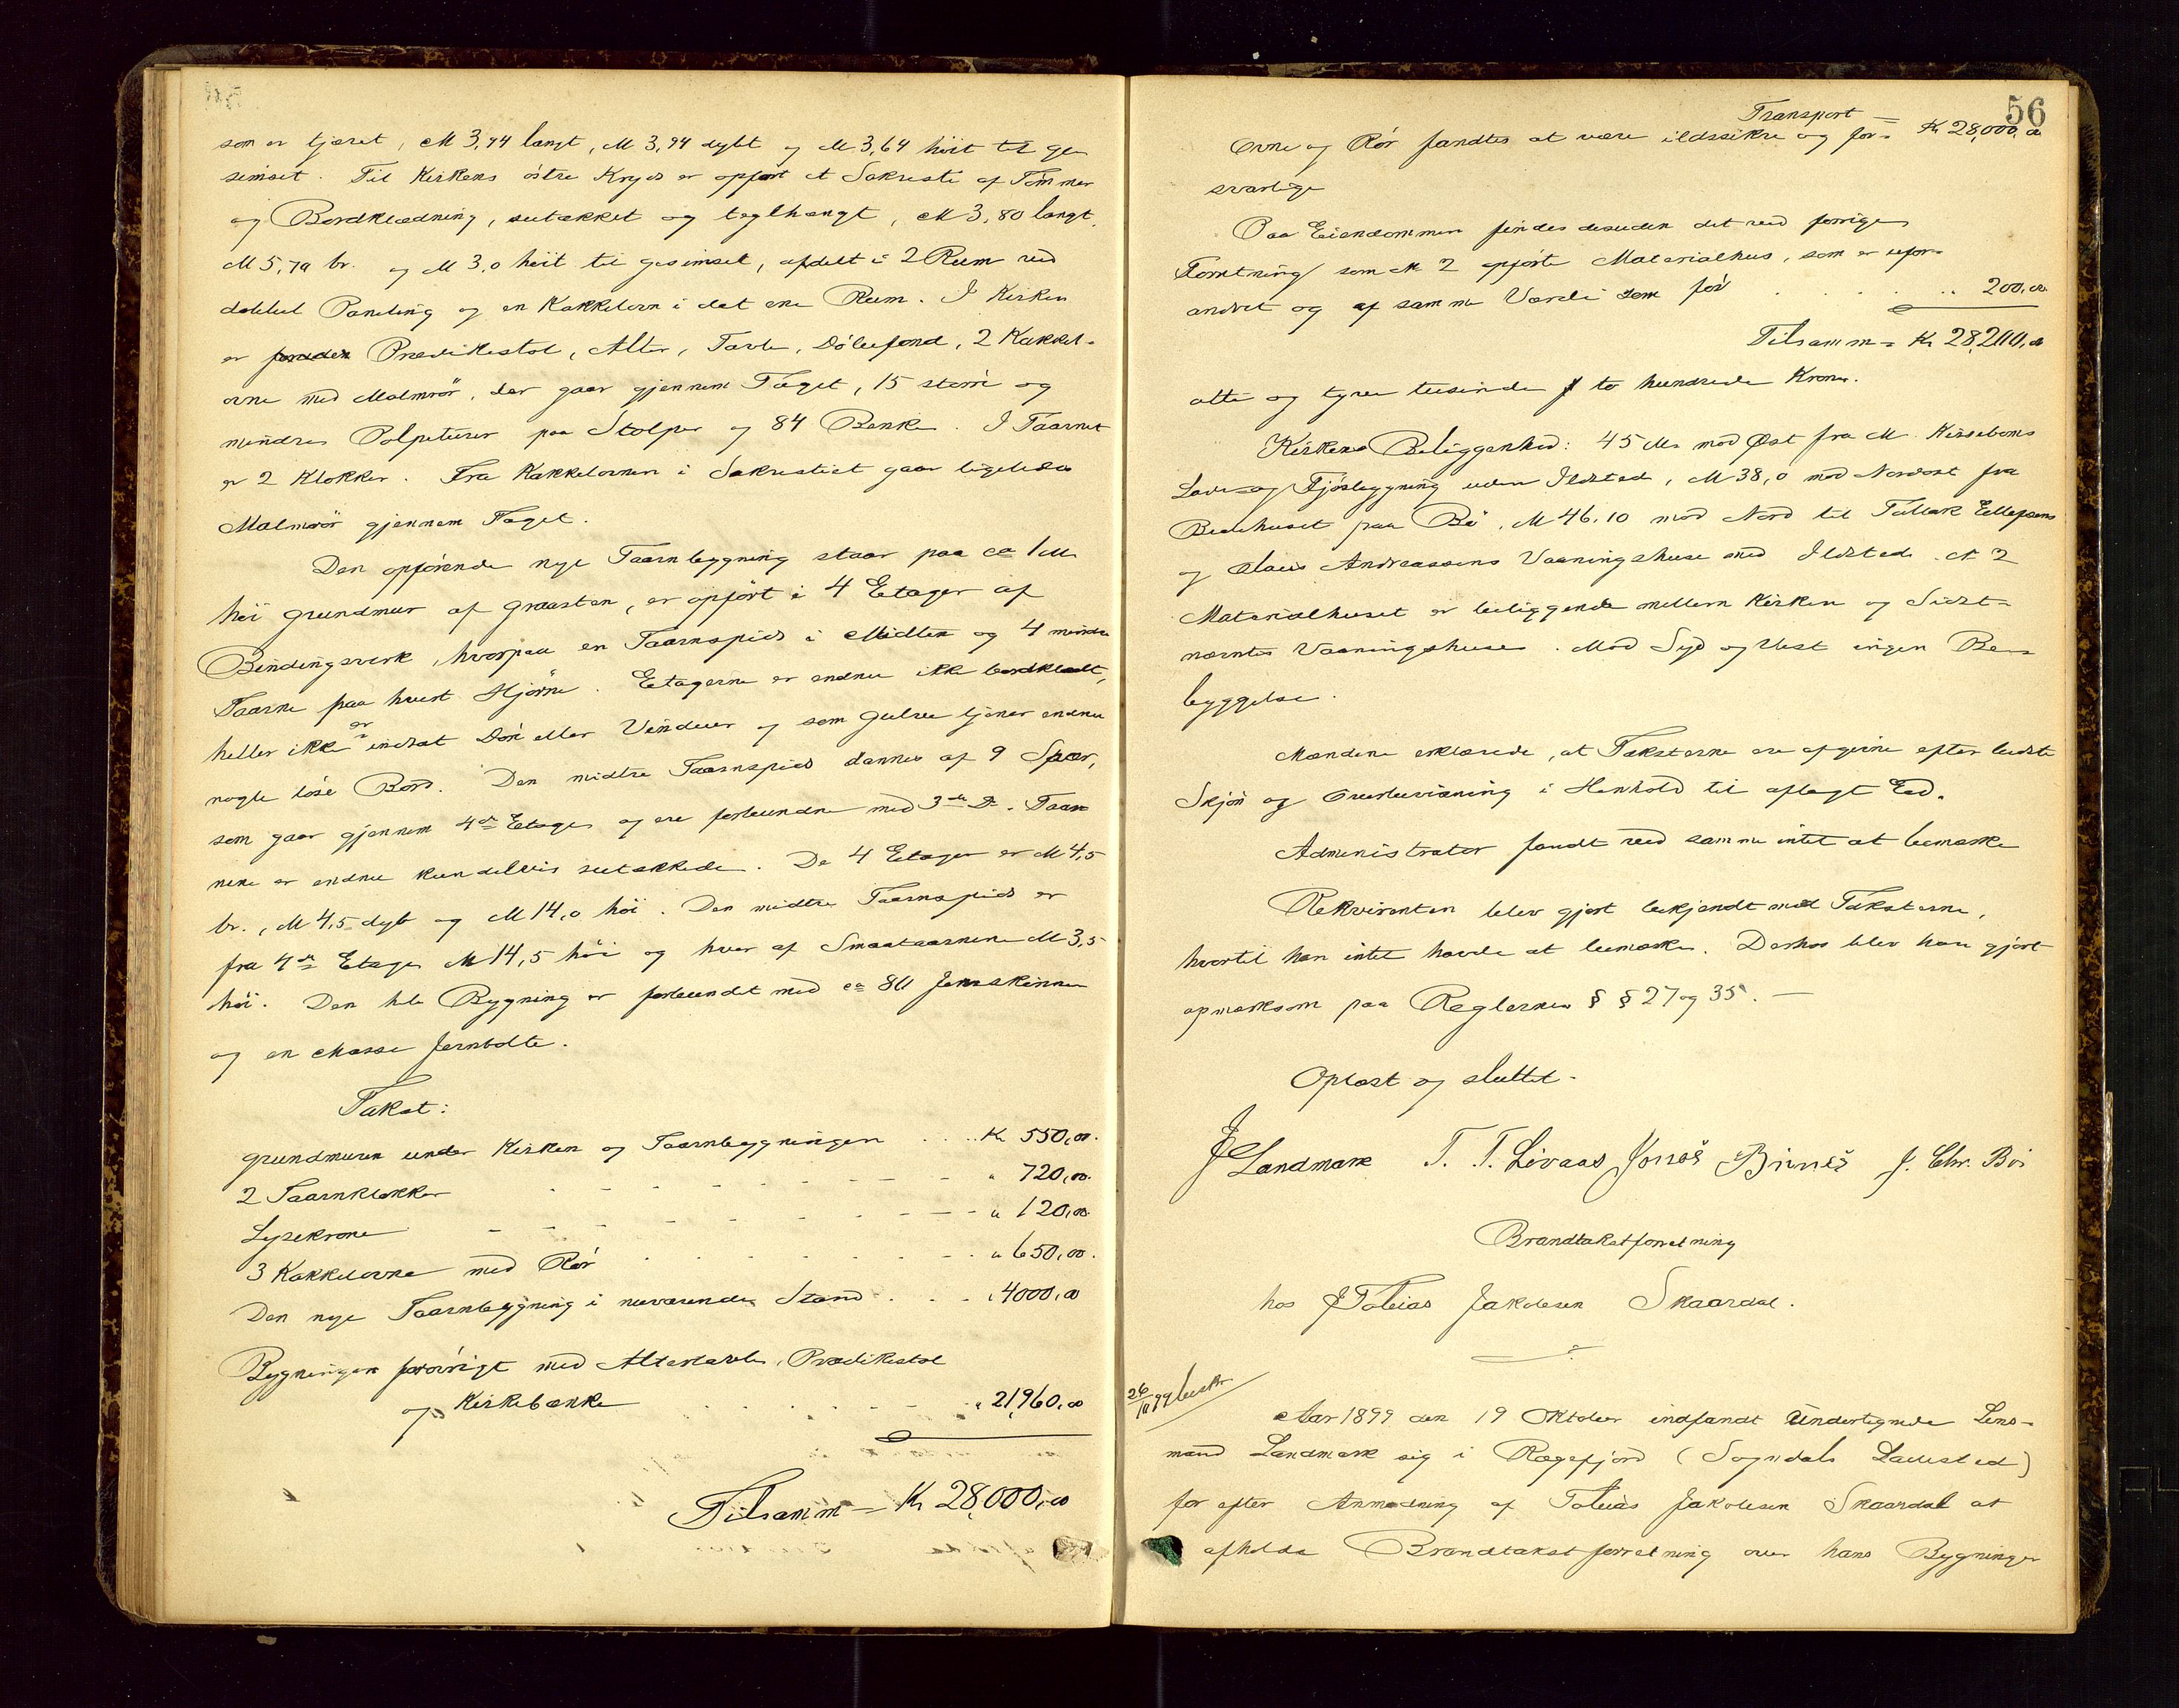 som er tjæret, M 3,94 langt, M 3,94 dybt og M 3,64 höit til ge
simset. Til Kirkens östre Kryds er opfört et Sakristi af Tömmer
og Bordklædning, sutækket og teglhængt, M 3,80 langt,
M 5,70 br. og M 3,0 höit til gesimset, afdelt i 2 Rum ved
dobbel Paneling og en Kakkelovn i det ene Rum. I Kirken
er foruden Prædikestol, Alter, Tavle, Döbefond, 2 Kakkel-
ovne med Malmrör, der gaar gjennem Taget, 15 större og
mindre Polpeturer paa Stolper og 84 Benke. I Taarnet
er 2 Klokker. Fra Kakkelovnen i Sakristiet gaar ligeledes
Malmrör gjennem Taget.
Den opförende nye Taarnbygning staar paa ca 1 M.
höi grundmur af graasten, er opfört i 4 Etager af
Bindingsverk, hvorpaa en Taarnspids i Midten og 4 mindre
Taarne paa hvert Hjörne. Etagerne er endnu ikke bordklædt,
heller ikke er indsat Dör eller Vinduer og som gulve tjener endnu
nogle löse Bord. Den midtre Taarnspids dannes af 9 Spær,
som gaar gjennem 4de Etage og ere forbundne med 3die Do. Taar
nene er endnu kun delvis sutækkede. De 4 Etager er M 4,5
br., M 4,5 dyb og M 14,0 höi. Den midtre Taarnspids er
fra 4de Etage M 14,5 höi og hver af Smaataarnene M 3,5
höi. Den hele Bygning er forbundet med ca 80 Jernskinner
og en Masse Jernbolte.
Takst:
grundmuren under Kirken og Taarnbygningen . . . . Kr 550,00.
2 Taarnklokker - - - - - - - " 720,00.
Lysekrone - - - - - - - " 120,00
3 Kakkelovne med Rör . . . . . . . " 650,00.
Den nye Taarnbygning i nuværende Stand . . . " 4000,00
Bygningen forövrigt med Altertavle, Prædikestol
og Kirkebænke . . . . . . . " 21,960,00
Tilsamm = Kr 28,000,00
56
Transport = Kr 28,000,00
Ovne og Rör fandtes at være ildssikre og for-
svarlige
Paa Eiendommen findes desuden det ved forrige
Forretning som No 2 opförte Materialhus, som er ufor-
andret og af samme Værdi som för . . . . . . 200,00
Tilsamm = Kr 28,200,00
otte og tyve tusinde to hundrede Kroner.
Kirkens Beliggenhed: 45 M. mod Öst fra M. Kirkebøns
Lade og Fjösbygning uden Ildsted, M 38,0 mod Nordost fra
Bedehuset paa Bö, M 46,10 mod Nord til Tallak Ellefsens
og Olaus Andreassens Vaaningshuse med Ildsted. No 2
Materialhuset er beliggende mellem Kirken og Sidst-
nævntes Vaaningshuse. Mod Syd og Vest ingen Be-
byggelse.
Mændene erklærede, at Taksterne ere afgivne efter bedste
Skjön og Overbevisning i Henhold til aflagt Ed.
Administrator fandt ved samme intet at bemærke
Rekvirenten blev gjort bekjendt med Taksterne,
hvortil han intet havde at bemærke. Derhos blev han gjort
opmærksom paa Reglernes § § 27 og 35. —
Oplæst og sluttet.
Landmark T. T. Livaas Jonas J. Chr. Bö
Brandtakstforretning
hos Tobias Jakobsen Skaardal.
26/10 99
Aar 1899 den 19 Oktober indfandt Undertegnede Lens-
mand Landmark sig i Rægefjord (Sogndals Ladested)
for efter Anmodning af Tobias Jakobsen Skaardal at
afholde Brandtakstforretning over hans Bygninger